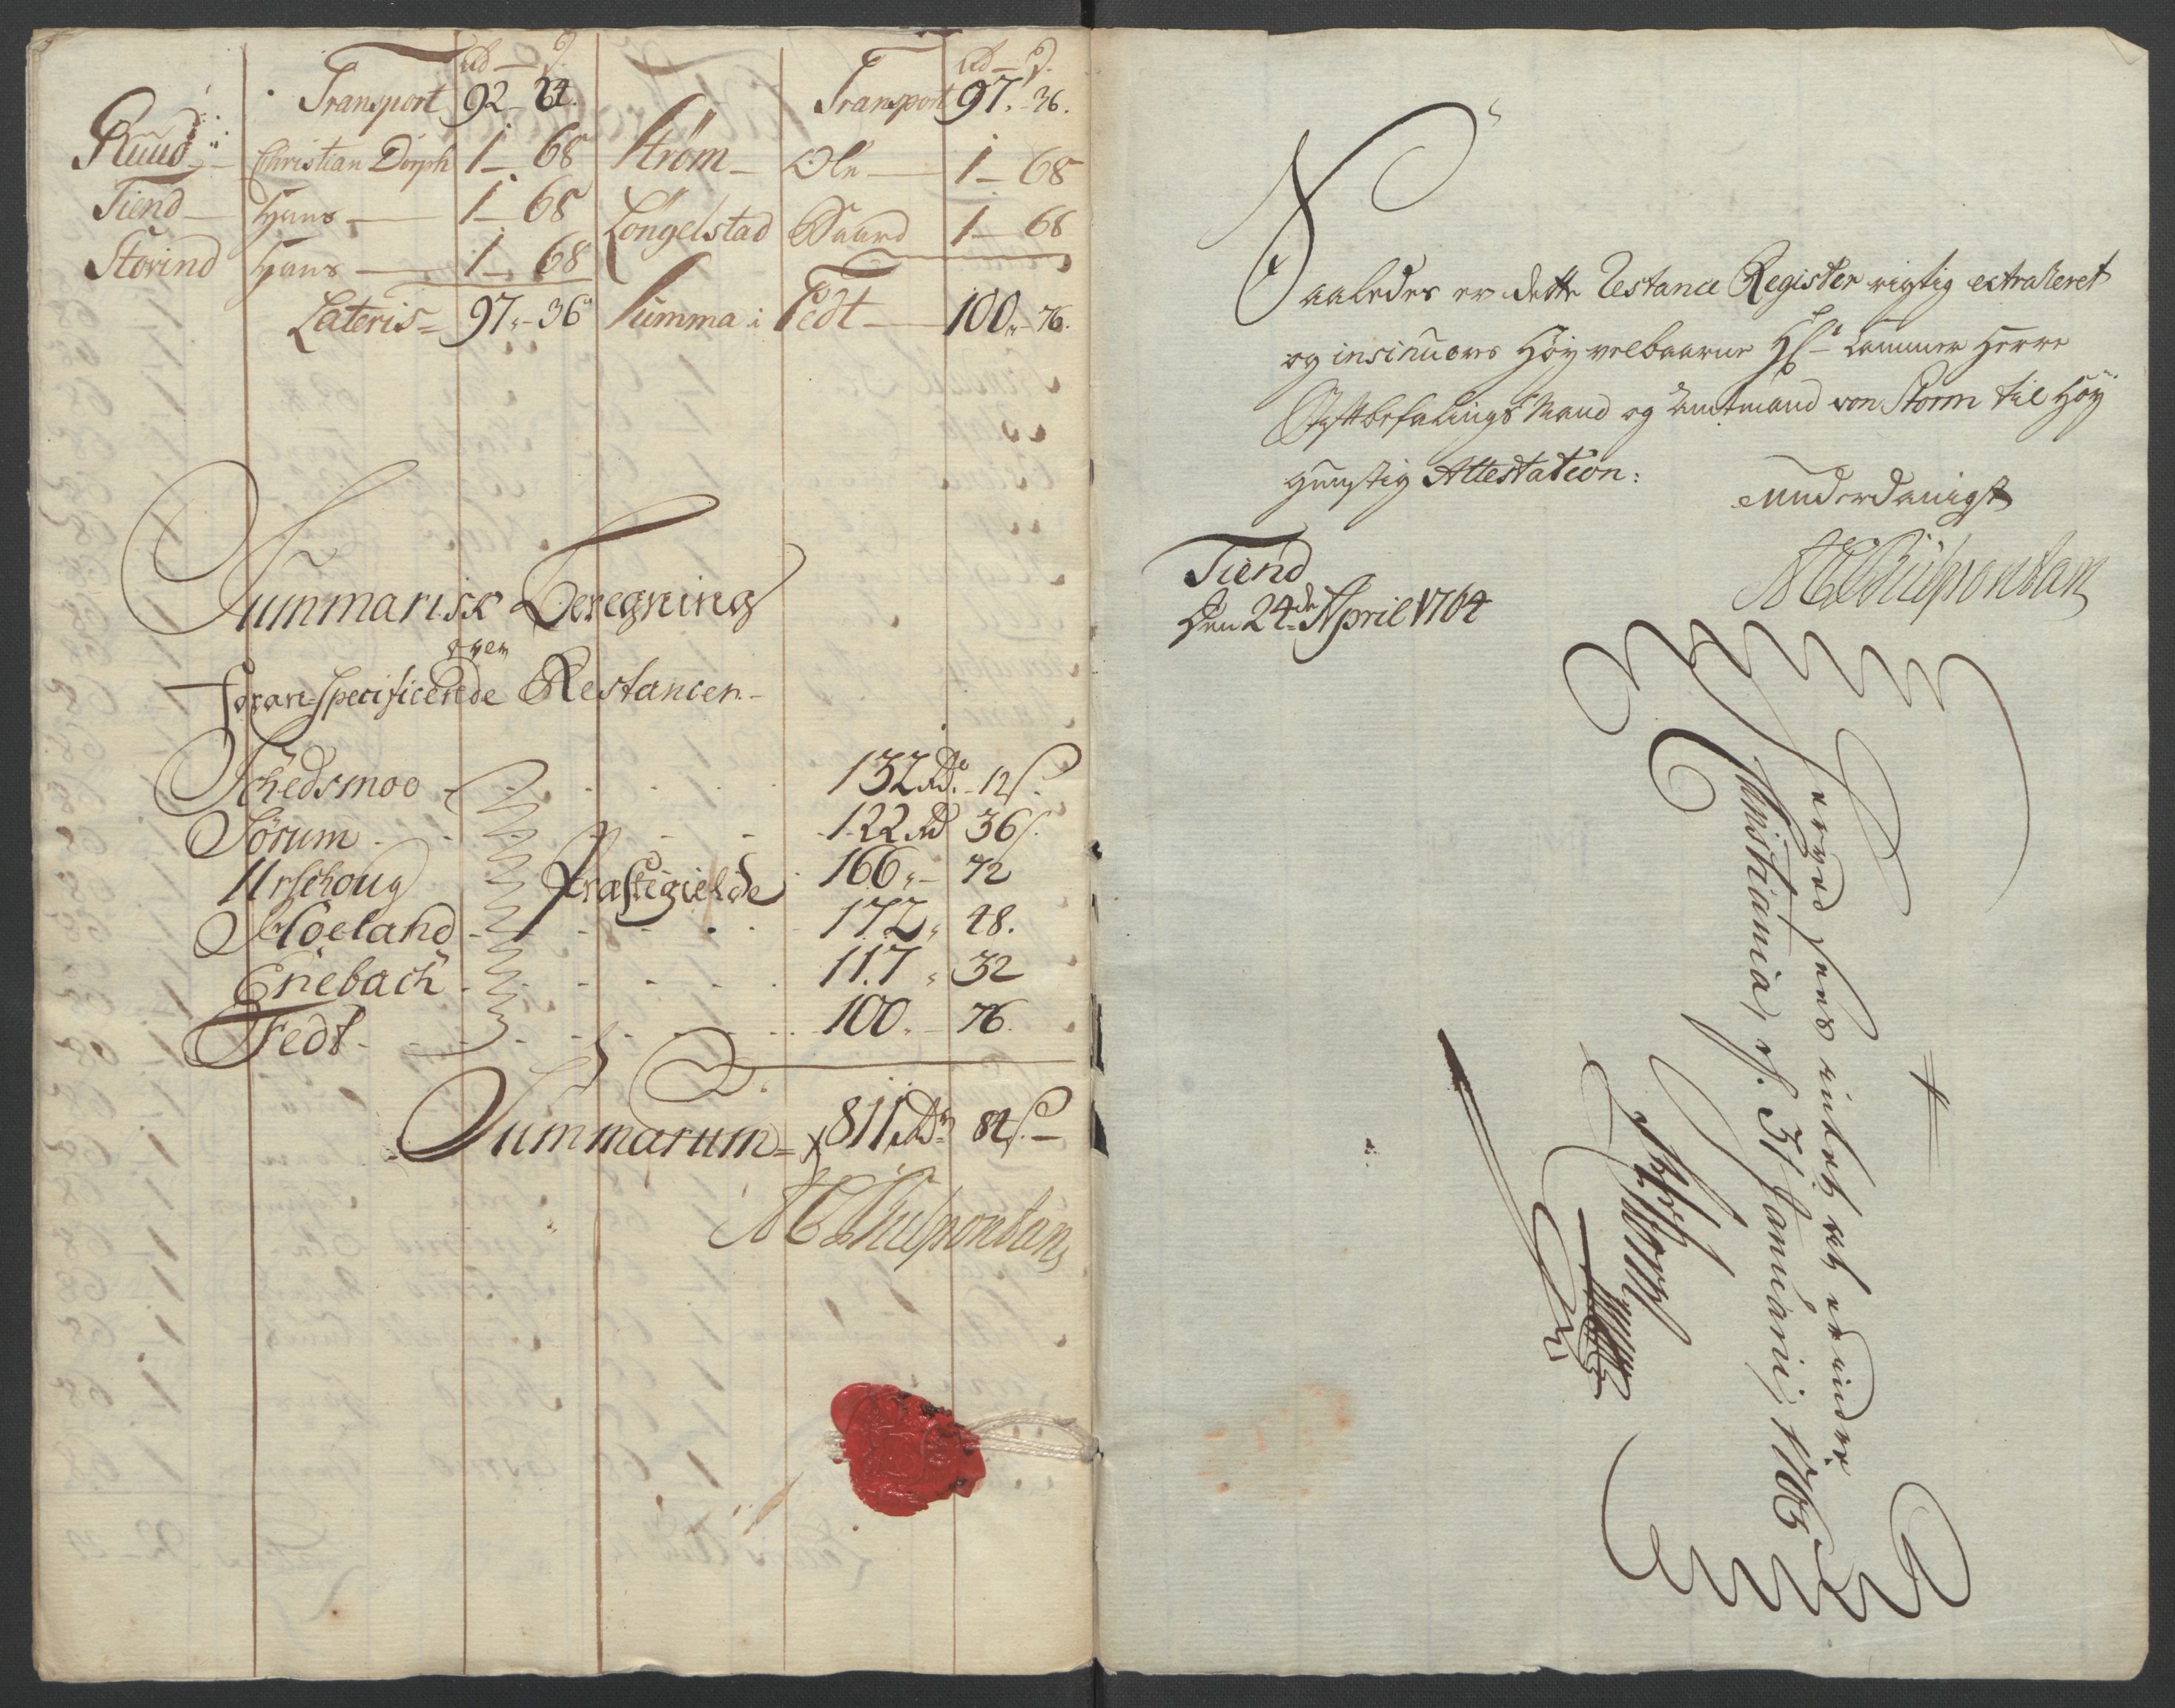 Rd — ß.
Transport 92 - 24.
Ruud — Christian Dorph 1 — 68
Tiend — Hans — 1 — 68
Storind Hans — 1 — 68
Lateris = 97 „ - 36
Rd — ß.
Transport 97. - 36.
Strøm — Ole — 1 — 68
Longelstad Baard 1 — 68
Summa i Fedt — 100 „ - 76.
Summarisk Beregning
over
foran-specificerede Restancer. -
Schedsmoe 132 Rd. - 12 ß.
Sørum 122 Rd 36 ß.
Urschoug 166 „ - 72
Høeland 172 „ 48.
Enebach 117 „ 32
Fedt 100. - 76.
Præstegielde
Summarum = 811 Rdr 84 ß. -
Saaledes er dette Restance Register rigtig extraheret
og insinueres Høyvelbaarne Hr Cammer Herre
Stiftbefalings Mand og Amtmand von Storm til Høy
gunstig Attestation:
underdanigst
Tiend
Den 24de April 1764
intet
Christiania, d. 31 Januarii, 1765
Storm